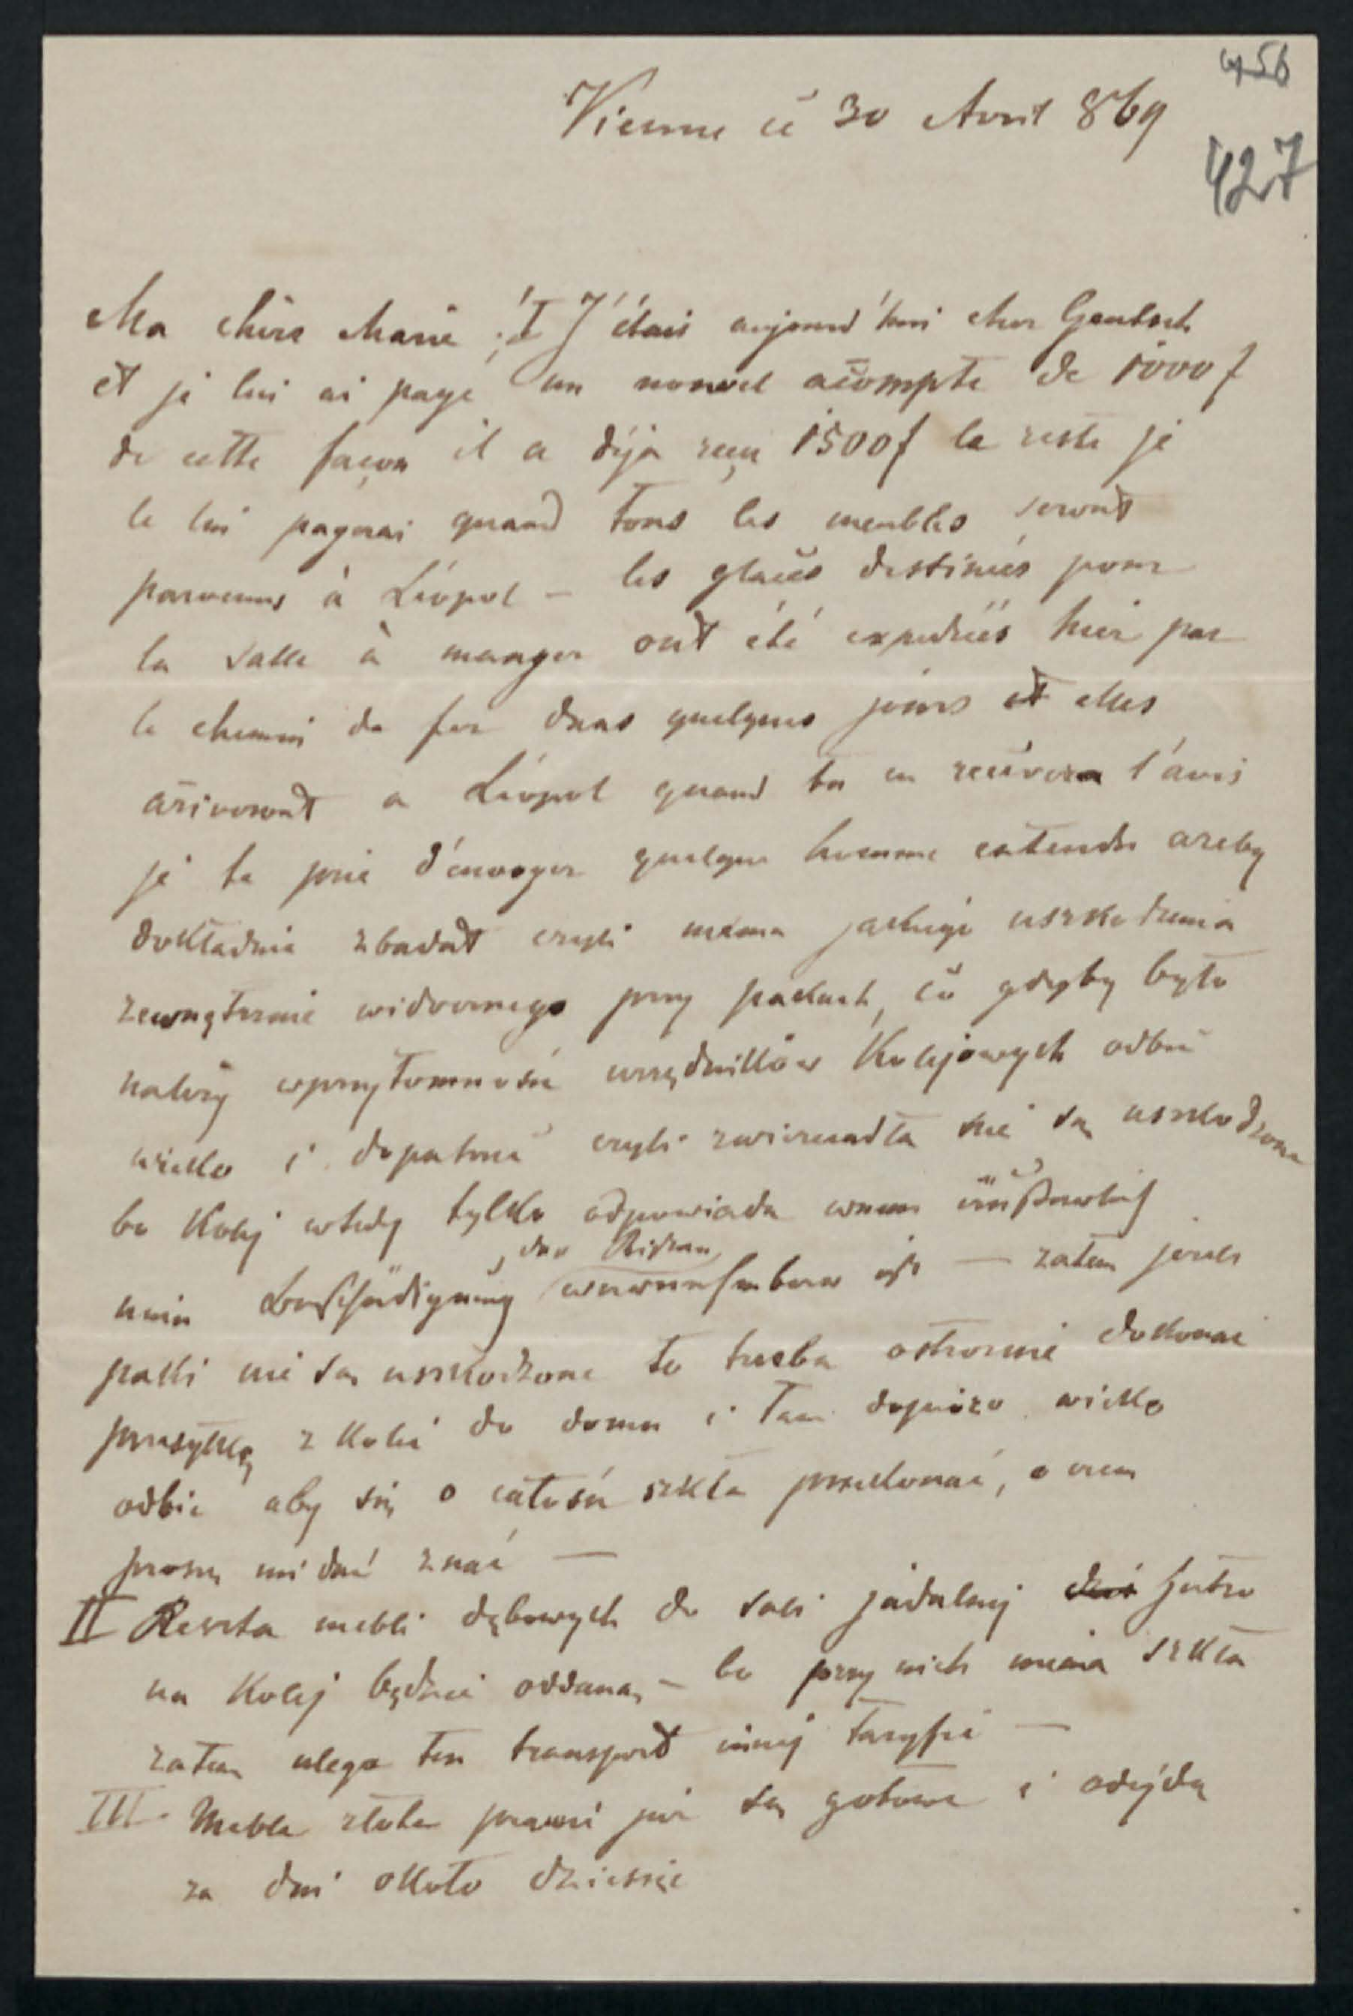 456
Vienne ce 30 Avril 869
427
Ma chère Marie ! I J'étais aujourd'hui chez
et je lui ai payé un nouvel acompte de 1000 f
de cette façon il a déja reçu 1500 f le reste je
le lui payerai quand tous les meubles seront
parvenus à Léopol – les glaces destinées pour
la salle à manger ont été expediées hier par
le chemin de fer dans quelques jours et elles
ariveront a Léopol quand tu en recevera l'avis
je te prie d'envoyer quelque homme entendu azeby
dokładnie zbadał czyli niema jakiego uszkodzenia
zewnętrznie widocznego przy pakach, co gdyby było
należy wprzytomności urzędników Kolejowych odbić
wieko i dopatrzeć czyli zwierciadła nie są uszkodzone
bo Kolej wtedy tylko odpowiada wenn äußerlich
eine Beschädigung
an den Kisten
wahrnehmbar ist — zatem jeżeli
paki nie są uszkodzone to trzeba ostrożnie dokonać
przesyłkę z Kolei do domu i tam dopiéro wieko
odbić aby się o całości szkła przekonać, o czem
proszę mi dać znać —
II Reszta mebli dębowych do sali jadalnej dziś jutro
na Kolej będzie oddana, – bo przy nich niema szkła
zatem ulega ten transport innej taryfie —
III. Meble złote prawie już są gotowe i odejdą
za dni około dziesięć